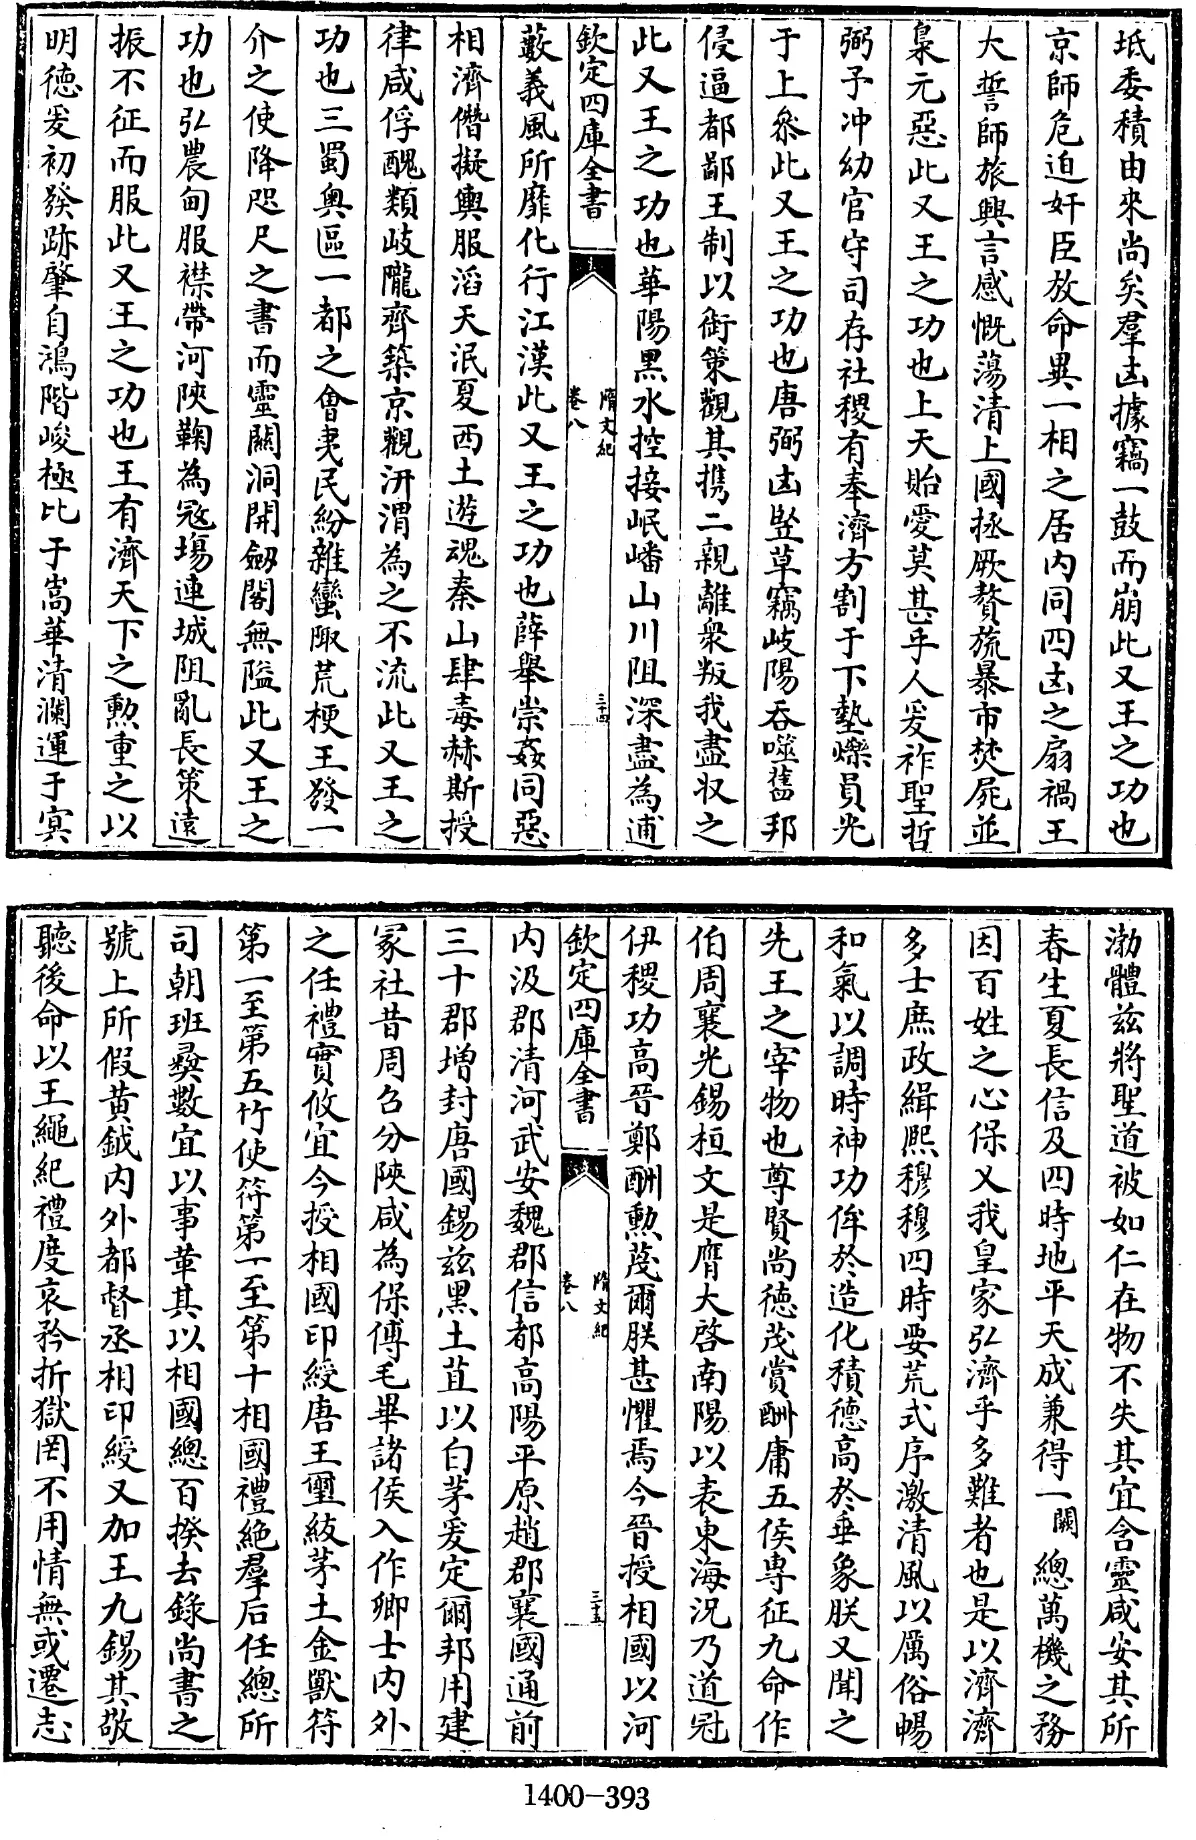 坻委積由來尚矣羣凶據竊一鼓而崩此又王之功也
京師危迫奸臣放命異一相之居内同四凶之扇禍王
大誓師旅興言感慨蕩清上國拯厥贅旒暴市焚屍並
梟元惡此又王之功也上天貽愛莫甚乎人爰祚聖哲
弼予冲幼官守司存社稷有奉濟方割于下墊爍員光
于上叅此又王之功也唐弼凶豎草竊岐陽吞噬舊邦
侵逼都鄙王制以銜策觀其携二親離衆叛我盡収之
此又王之功也華陽黒水控接岷嶓山川阻深盡為逋
欽定四庫全書
隋文紀
卷八
三十四
藪義風所靡化行江漢此又王之功也薛舉崇姦同惡
相濟僭擬輿服滔天泯夏西土遊魂秦山肆毒赫斯授
律咸俘醜類岐隴齊築京觀汧渭為之不流此又王之
功也三蜀輿區一都之會夷民紛雜蠻陬荒梗王發一
介之使降咫尺之書而靈關洞開劒閣無隘此又王之
功也弘農甸服襟帶河陜鞠為冦塲連城阻亂長策遠
振不征而服此又王之功也王有濟天下之勲重之以
明徳爰初發跡肇自鴻階峻極比于嵩華清瀾運于㝠
渤體兹將聖道被如仁在物不失其宜含靈咸安其所
春生夏長信及四時地平天成兼得一闕總萬機之務
因百姓之心保乂我皇家弘濟乎多難者也是以濟濟
多士庶政緝熙穆穆四時要荒式序激清風以厲俗暢
和氣以調時神功侔於造化積德高於垂象朕又聞之
先王之宰物也尊賢尚徳茂賞酬庸五侯専征九命作
伯周襄光錫桓文是膺大啓南陽以表東海況乃道冠
伊稷功高晉鄭酬勲茂爾朕甚懼焉今晉授相國以河
欽定四庫全書
隋文紀
卷八
三十五
内汲郡清河武安魏郡信都高陽平原趙郡襄國通前
三十郡增封唐國錫兹黒土苴以白茅爰定爾邦用建
冢社昔周召分陜咸為保傅毛畢諸侯入作卿士内外
之任禮實攸宜今授相國印綬唐王璽紱茅土金獸符
第一至第五竹使符第一至第十相國禮絶羣后任總所
司朝班彞數宜以事革其以相國總百揆去錄尚書之
號上所假黄鉞内外都督丞相印綬又加王九錫其敬
聽後命以王繩紀禮度哀矜折獄罔不用情無或遷志
1400-393